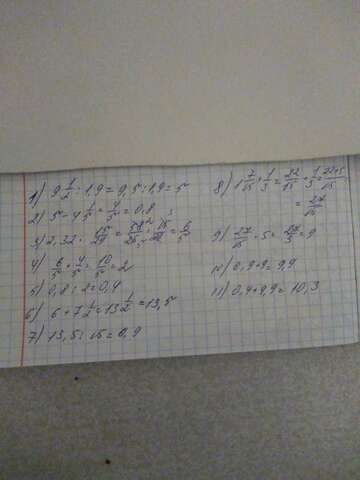 1) 9 1/2 : 1,9 = 9,5 : 1,9 = 5
2) 5 - 4 1/5 = 4/5 = 0,8
3) 2,32 · 15/29 = 58/25 · 15/29 = 6/5
4) 6/5 + 4/5 = 10/5 = 2
5) 0,8 : 2 = 0,4
6) 6 + 7 1/2 = 13 1/2 = 13,5
7) 13,5 : 15 = 0,9
8) 1 7/15 + 1/3 = 22/15 + 1/3 = 22+5/15
= 27/15
9) 27/15 · 5 = 27/3 = 9
10) 0,9+9 = 9,9
11) 0,4+9,9 = 10,3